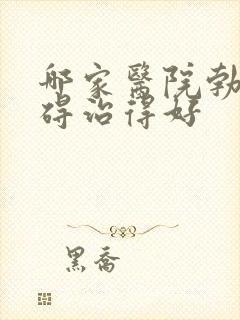 哪家醫院勃
碍治得好
黑喬